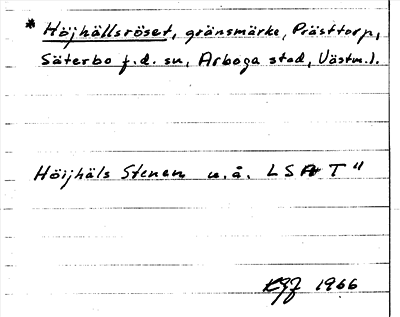 * Höjhällsröset, gränsmärke, Prästtorp,
Säterbo f.d. sn, Arboga stad, Västm.l.
Höijhäls Stenen u.å. LSA T 11
1966